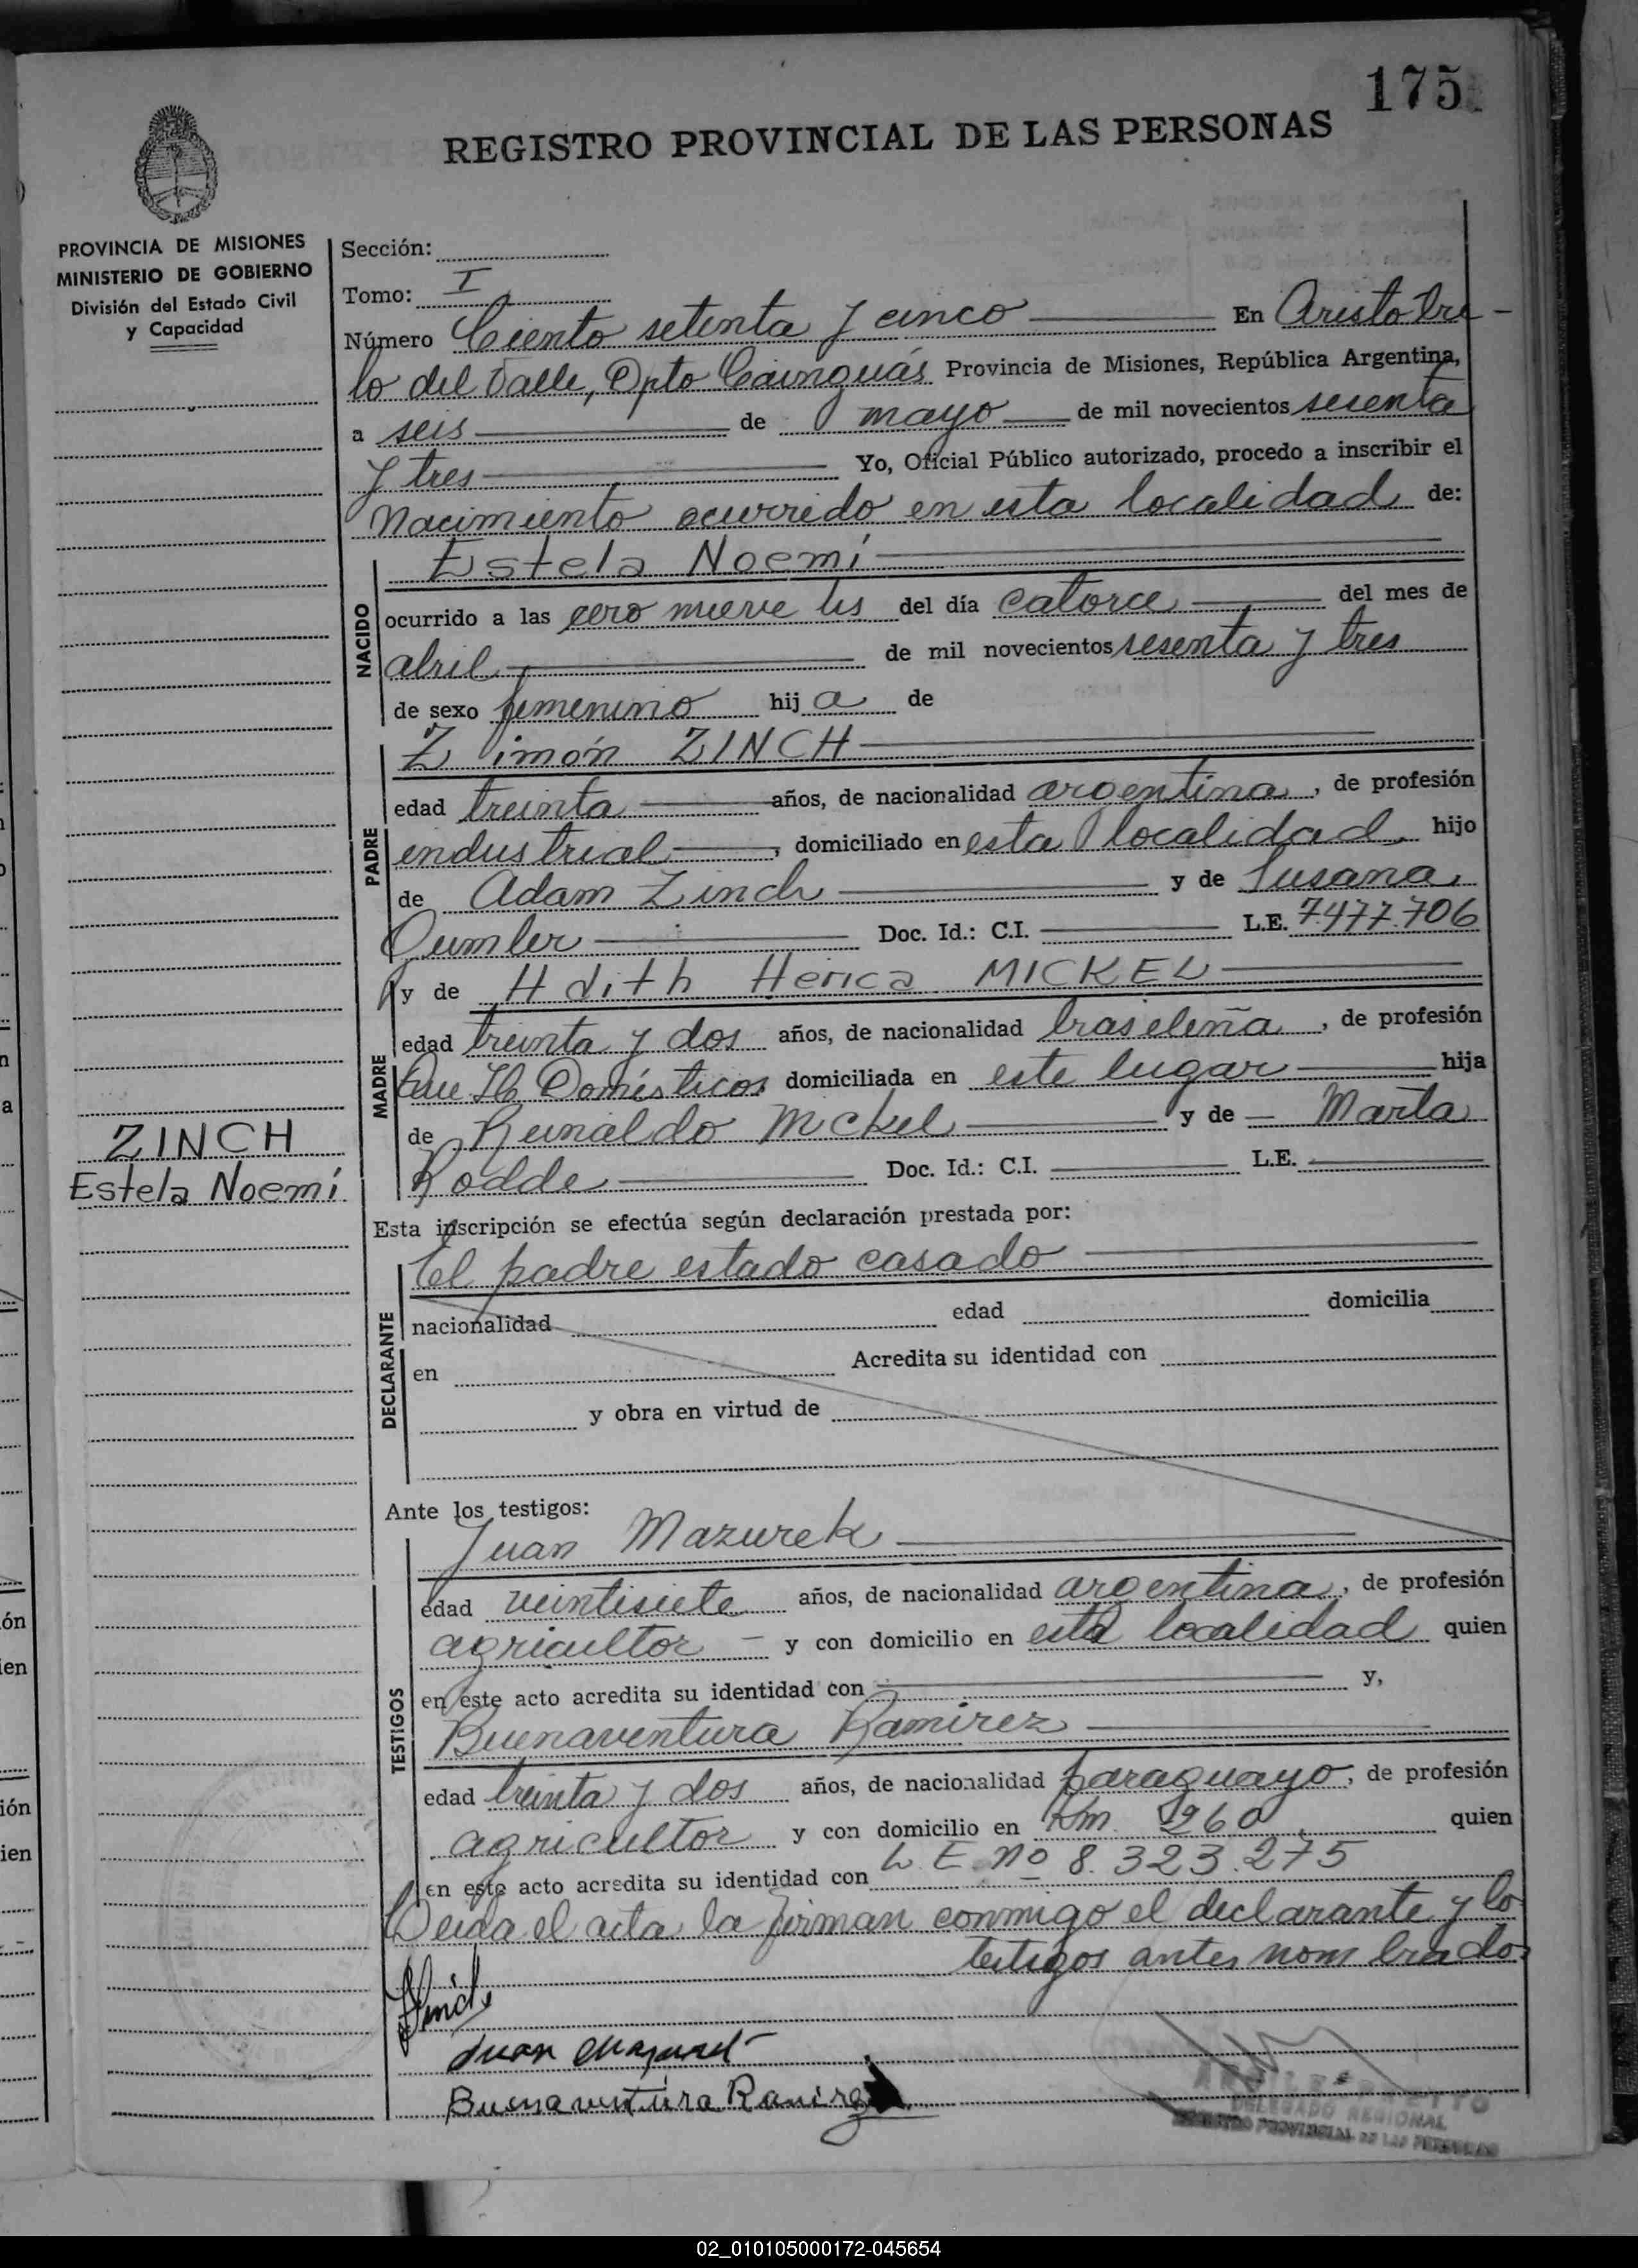 175
REGISTRO PROVINCIAL DE LAS PERSONAS
PROVINCIA DE MISIONES
MINISTERIO DE GOBIERNO
División del Estado Civil
y Capacidad
Sección:
Tomo: I
Número Ciento setenta y cinco En Aristobu-
lo del Valle, Dpto Cainguás Provincia de Misiones, República Argentina,
a seis de mayo de mil novecientos sesenta
y tres Yo, Oficial Público autorizado, procedo a inscribir el
Nacimiento ocurrido en esta localidad de:
Estela Noemí
NACIDO
ocurrido a las cero nueve hs del día catorce del mes de
abril de mil novecientos sesenta y tres
de sexo femenino hij a de
Zimón ZINCH
PADRE
edad treinta años, de nacionalidad argentina, de profesión
industrial, domiciliado en esta localidad hijo
de Adam Zinch y de Susana
Doc. Id.: C.I. L.E. 7.477.706
y de Hdith Hérica MICKEL
MADRE
edad treinta y dos años, de nacionalidad brasileña, de profesión
Domésticos domiciliada en este lugar hija
de Reinaldo Mickel y de Marta
Rodde Doc. Id.: C.I. L.E.
ZINCH
Estela Noemí
Esta inscripción se efectúa según declaración prestada por:
El padre estado casado
DECLARANTE
nacionalidad edad domicilia
en Acredita su identidad con
y obra en virtud de
Ante los testigos:
Juan Mazurek
TESTIGOS
edad veintisiete años, de nacionalidad argentina, de profesión
agricultor y con domicilio en esta localidad quien
en este acto acredita su identidad con y,
Buenaventura Ramirez
edad treinta y dos años, de nacionalidad paraguayo, de profesión
agricultor y con domicilio en Km 260 quien
en este acto acredita su identidad con L.E. no 8.323.275
Leida el acta la firman conmigo el declarante y lo
testigos antes nombrados
Zinch
Juan Mazurek
Buenaventura Ramirez
DELEGADO REGIONAL
REGISTRO PROVINCIAL DE LAS PERSONAS
02_010105000172-045654